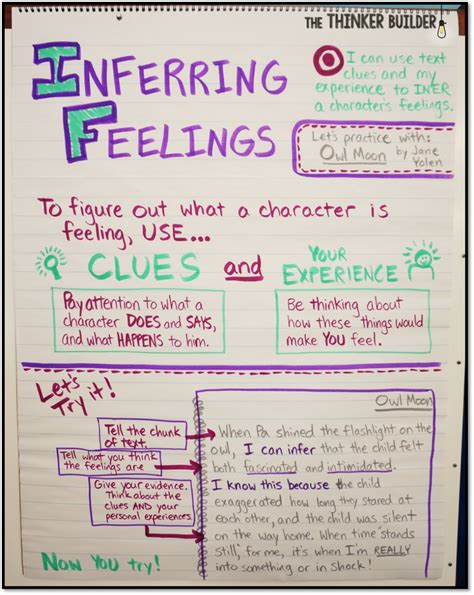 THE THINKER BUILDER
INFERRING
FEELINGS
I can use text
clues and my
experience to INER
a character's feelings.
Let's practice with:
Owl Moon by Jane Yolen
To figure out what a character is
feeling, USE...
CLUES and YOUR EXPERIENCE
Pay attention to what a
character DOES and SAYS,
and what HAPPENS to him.
Be thinking about
how these things would
make YOU feel.
Let's
Try it!
Tell the chunk
of text.
Tell what you think
the feelings are
Give your evidence.
Think about the
clues AND your
personal experiences.
Now You try!
Owl Moon
When Pa shined the flashlight on the
owl, I can infer that the child felt
both fascinated and intimidated.
I know this because the child
exaggerated how long they stared at
each other, and the child was silent
on the way home. When time "stands
still," for me, it's when I'm REALLY
into something or in shock!